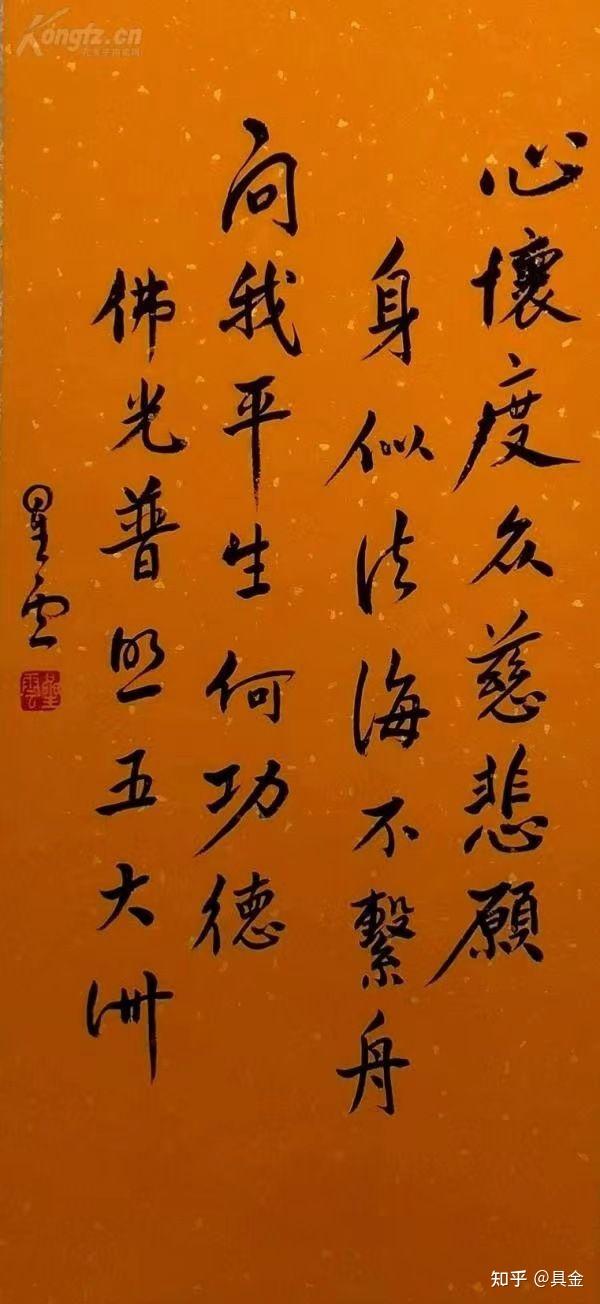 Kongfz.cn
心懷度众慈悲願
身似法海不繫舟
问我平生何功德
佛光普照五大洲
星雲
星雲
知乎 @具金